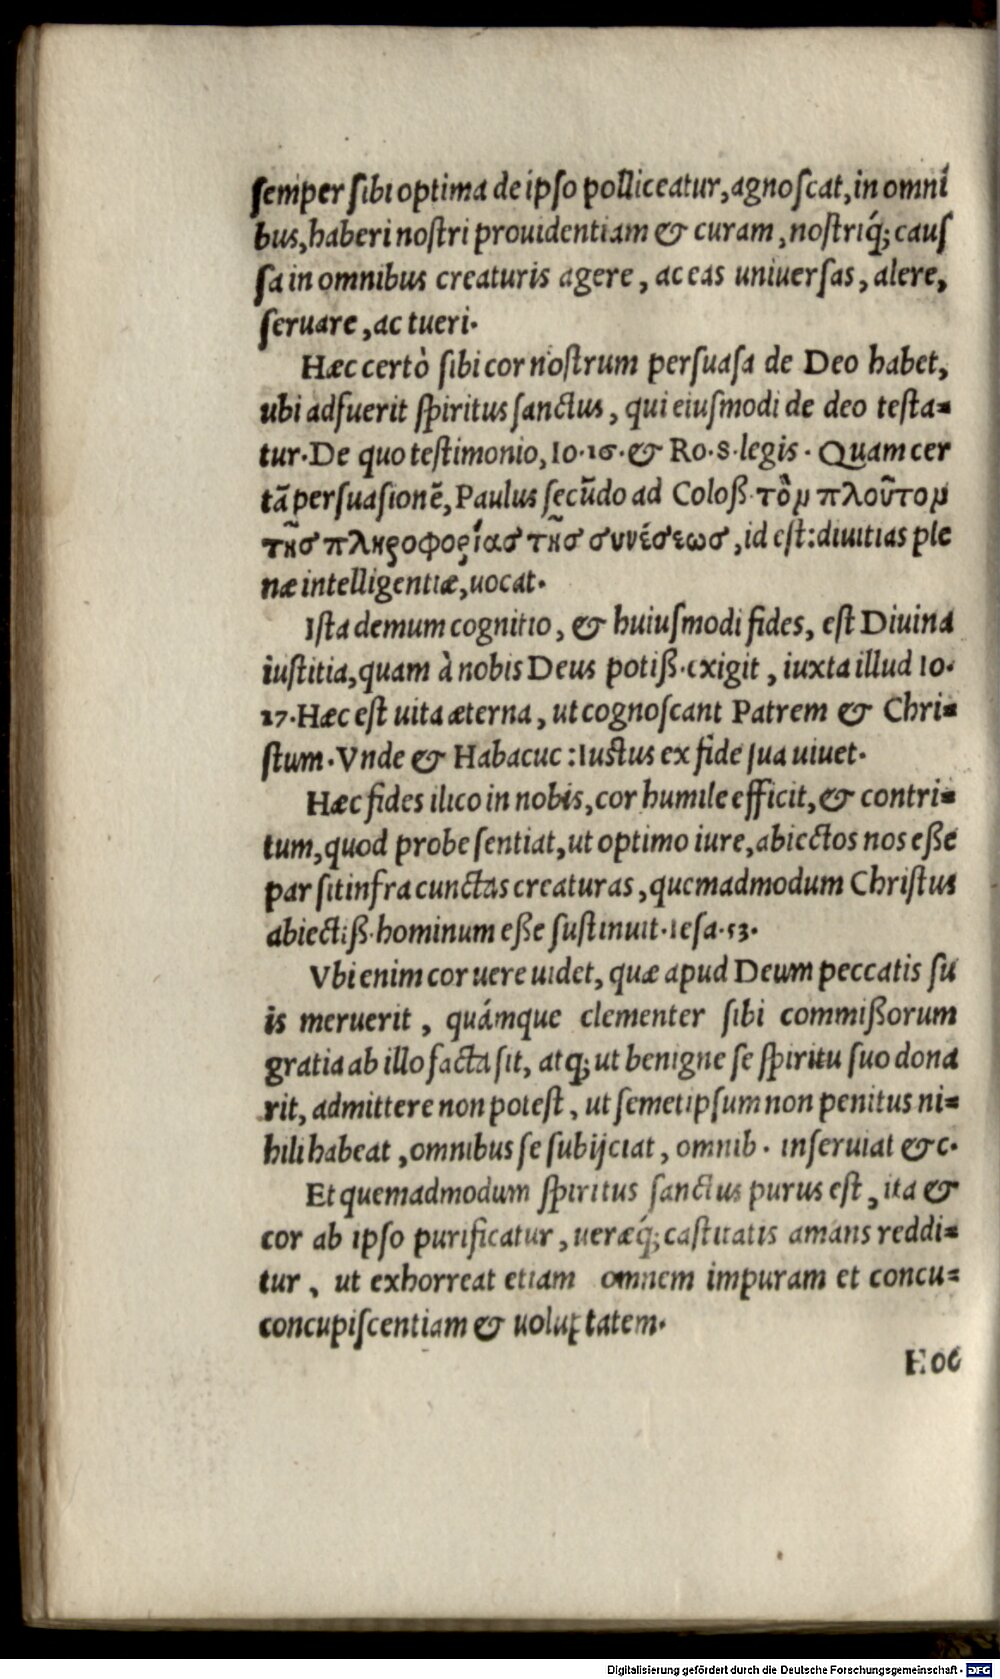 semper sibi optima de ipso polliceatur, agnoscat, in omni
bus, haberi nostri prouidentiam & curam, nostriq́; caus
sa in omnibus creaturis agere, ac eas uniuersas, alere,
seruare, ac tueri.
Hæc certò sibi cor nostrum persuasa de Deo habet,
ubi adfuerit spiritus sanctus, qui eiusmodi de deo testa=
tur. De quo testimonio, Io. 16. & Ro. 8. legis. Quam cer
tā persuasionē, Paulus secūdo ad Coloß. τὸν πλοῦτον
τῆσ πληροφορίασ τῆσ συνέσεωσ, id est: diuitias ple
næ intelligentiæ, uocat.
Ista demum cognitio, & huiusmodi fides, est Diuina
iustitia, quam à nobis Deus potiß. exigit, iuxta illud Io.
17. Hæc est uita æterna, ut cognoscant Patrem & Chri=
stum. Vnde & Habacuc: Iustus ex fide sua uiuet.
Hæc fides ilico in nobis, cor humile efficit, & contri=
tum, quod probe sentiat, ut optimo iure, abiectos nos eße
par sit infra cunctas creaturas, quemadmodum Christus
abiectiß. hominum eße sustinuit. Iesa. 53.
Vbi enim cor uere uidet, quæ apud Deum peccatis su
is meruerit, quámque clementer sibi commißorum
gratia ab illo facta sit, atq; ut benigne se spiritu suo dona
rit, admittere non potest, ut semetipsum non penitus ni=
hili habeat, omnibus se subijciat, omnib. inseruiat &c.
Et quemadmodum spiritus sanctus purus est, ita &
cor ab ipso purificatur, ueræq́; castitatis amans reddi=
tur, ut exhorreat etiam omnem impuram et concu=
concupiscentiam & uoluptatem.
Hoc
Digitalisierung gefördert durch die Deutsche Forschungsgemeinschaft - DFG